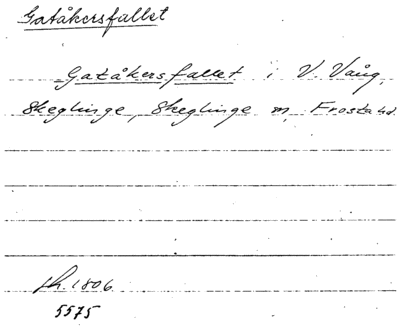 Gatåkersfallet
Gatåkersfallet i V. Vång,
Skeglinge, Skeglinge m, Frosta hd
sk. 1806
5575